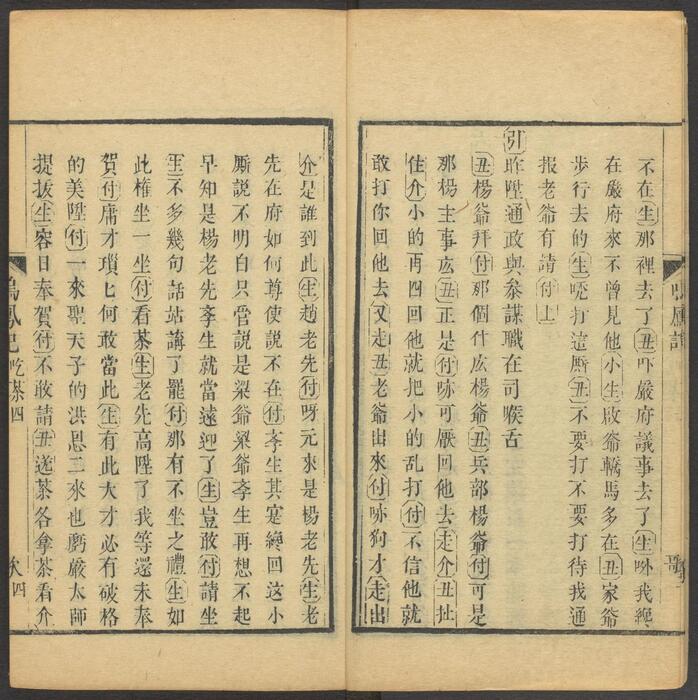 不在生那裡去了丑吓嚴府議事去了生咻我纔
在嚴府來不曾見他小生啟爺轎馬多在丑家爺
步行去的生唗打這厮丑不要打不要打待我通
報老爺有請付上
引昨陞通政與參謀職在司喉舌
丑楊爺拜付那個什庅楊爺丑兵部楊爺付可是
那楊主事庅丑正是付咻可厭回他去走介丑扯
住介小的再四回他就把小的乱打付不信他就
敢打你回他去又走丑老爺出來付咻狗才走出
鳴鳳記 吃茶 四
介是誰到此生趙老先付呀元來是楊老先生老
先在府如何尊使說不在付李生其寔纔回這小
厮說不明白只管說是梁爺梁爺李生再想不起
早知是楊老先李生就當遠迎了生豈敢付請坐
生不多幾句話站講了罷付那有不坐之禮生如
此權坐一坐付看茶生老先高陞了我等還未奉
賀付庸才瑣七何敢當此生有此大才必有破格
的美陞付一來聖天子的洪恩二來也虧嚴太師
提拔生容日奉賀付不敢請丑送茶各拿茶看介